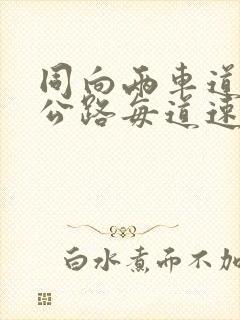 同向两车道
公路每道速
白水煮而不加